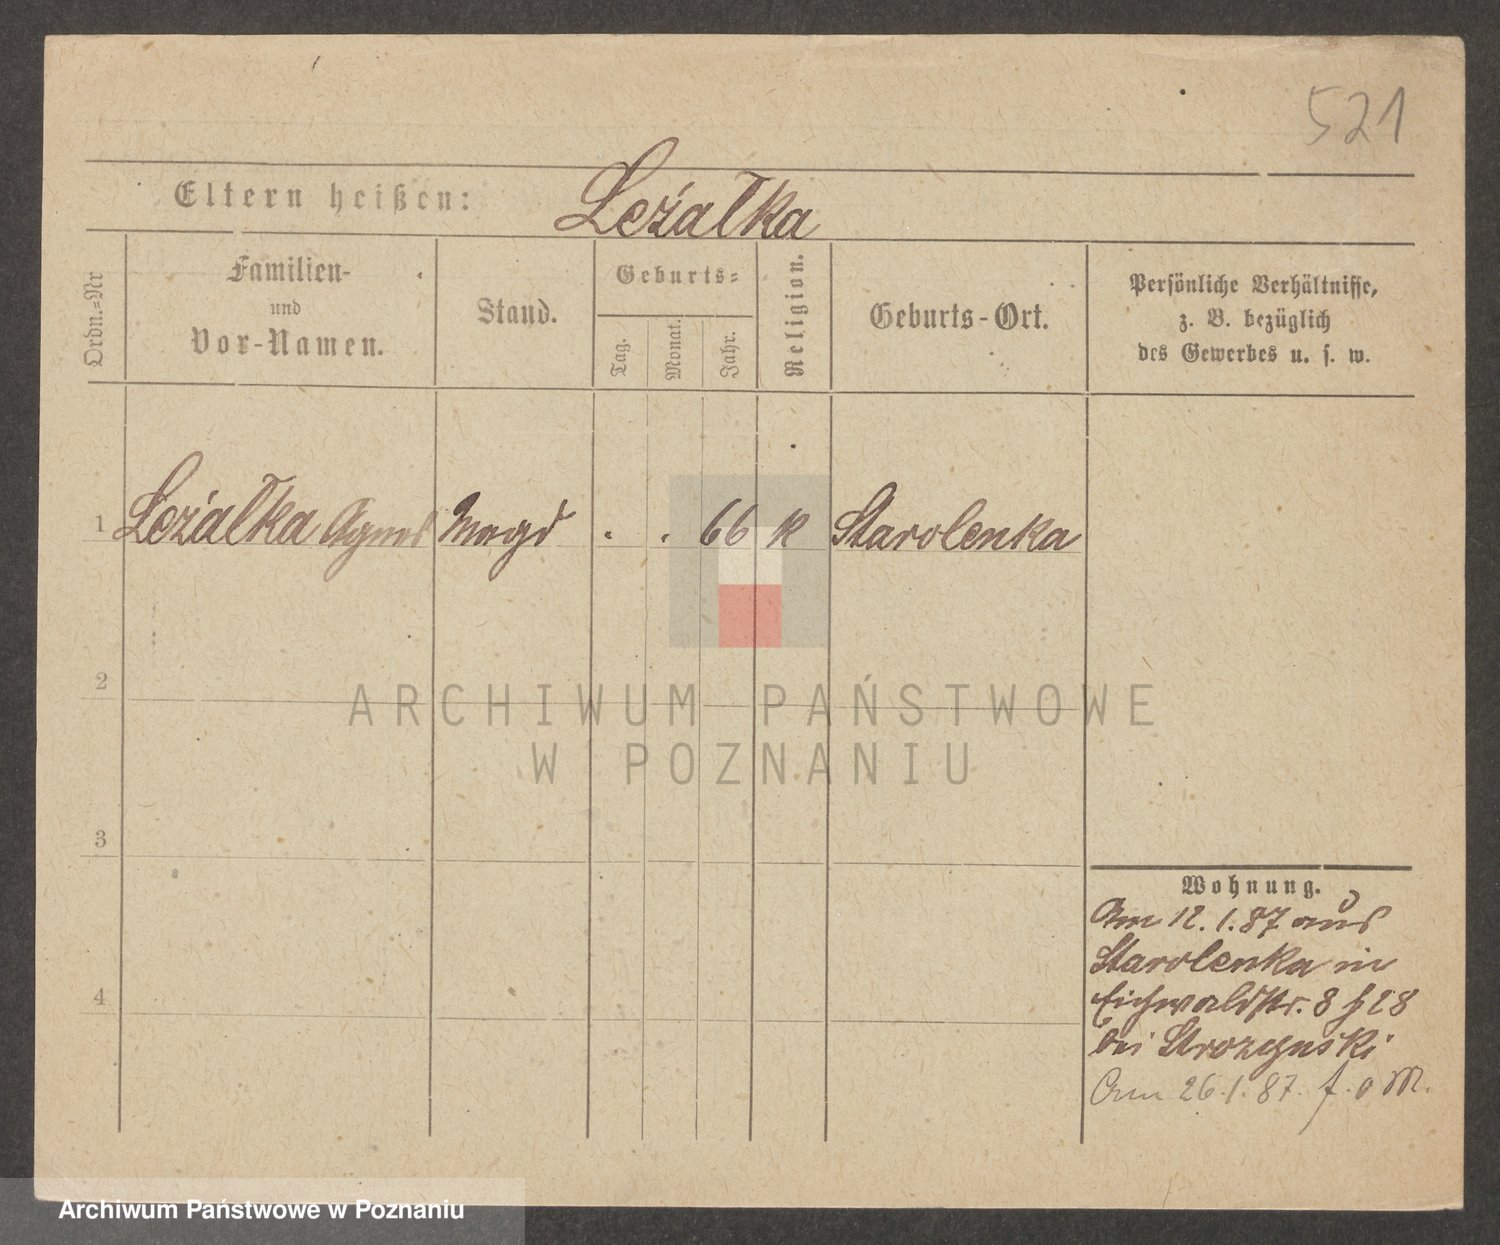 521
Eltern heißen: Leźałka
Ordn.-Nr
Familien-
und
Vor-Namen.
Stand.
Geburts-
Tag.
Monat.
Jahr.
Religion.
Geburts-Ort.
Persönliche Verhältnisse,
z. B. bezüglich
des Gewerbes u. s. w.
1 Leźałka Agnes Magd . . 66 k Starolenka
2
3
4
ARCHIWUM PAŃSTWOWE
W POZNANIU
Wohnung.
Am 12.1.87 aus
Starolenka in
Eichwaldstr. 8 28
bei Strozynski
Am 26.1.87. f. o M.
Archiwum Państwowe w Poznaniu